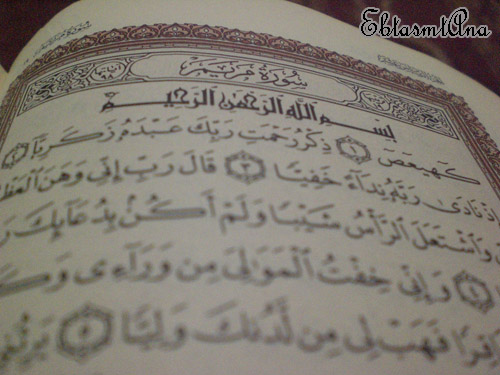 EbtasmtAna
سُورَةُ مَرْيَمَ
بِسْمِ ٱللَّهِ ٱلرَّحْمَٰنِ ٱلرَّحِيمِ
كٓهيعٓصٓ ١ ذِكْرُ رَحْمَتِ رَبِّكَ عَبْدَهُۥ زَكَرِيَّآ ٢
إِذْ نَادَىٰ رَبَّهُۥ نِدَآءً خَفِيًّا ٣ قَالَ رَبِّ إِنِّى وَهَنَ ٱلْعَظْ
وَٱشْتَعَلَ ٱلرَّأْسُ شَيْبًا وَلَمْ أَكُنۢ بِدُعَآئِكَ
٤ وَإِنِّى خِفْتُ ٱلْمَوَٰلِىَ مِن وَرَآءِى وَكَ
اقِرًا فَهَبْ لِى مِن لَّدُنكَ وَلِيًّا ٥ يَرِثُنِى